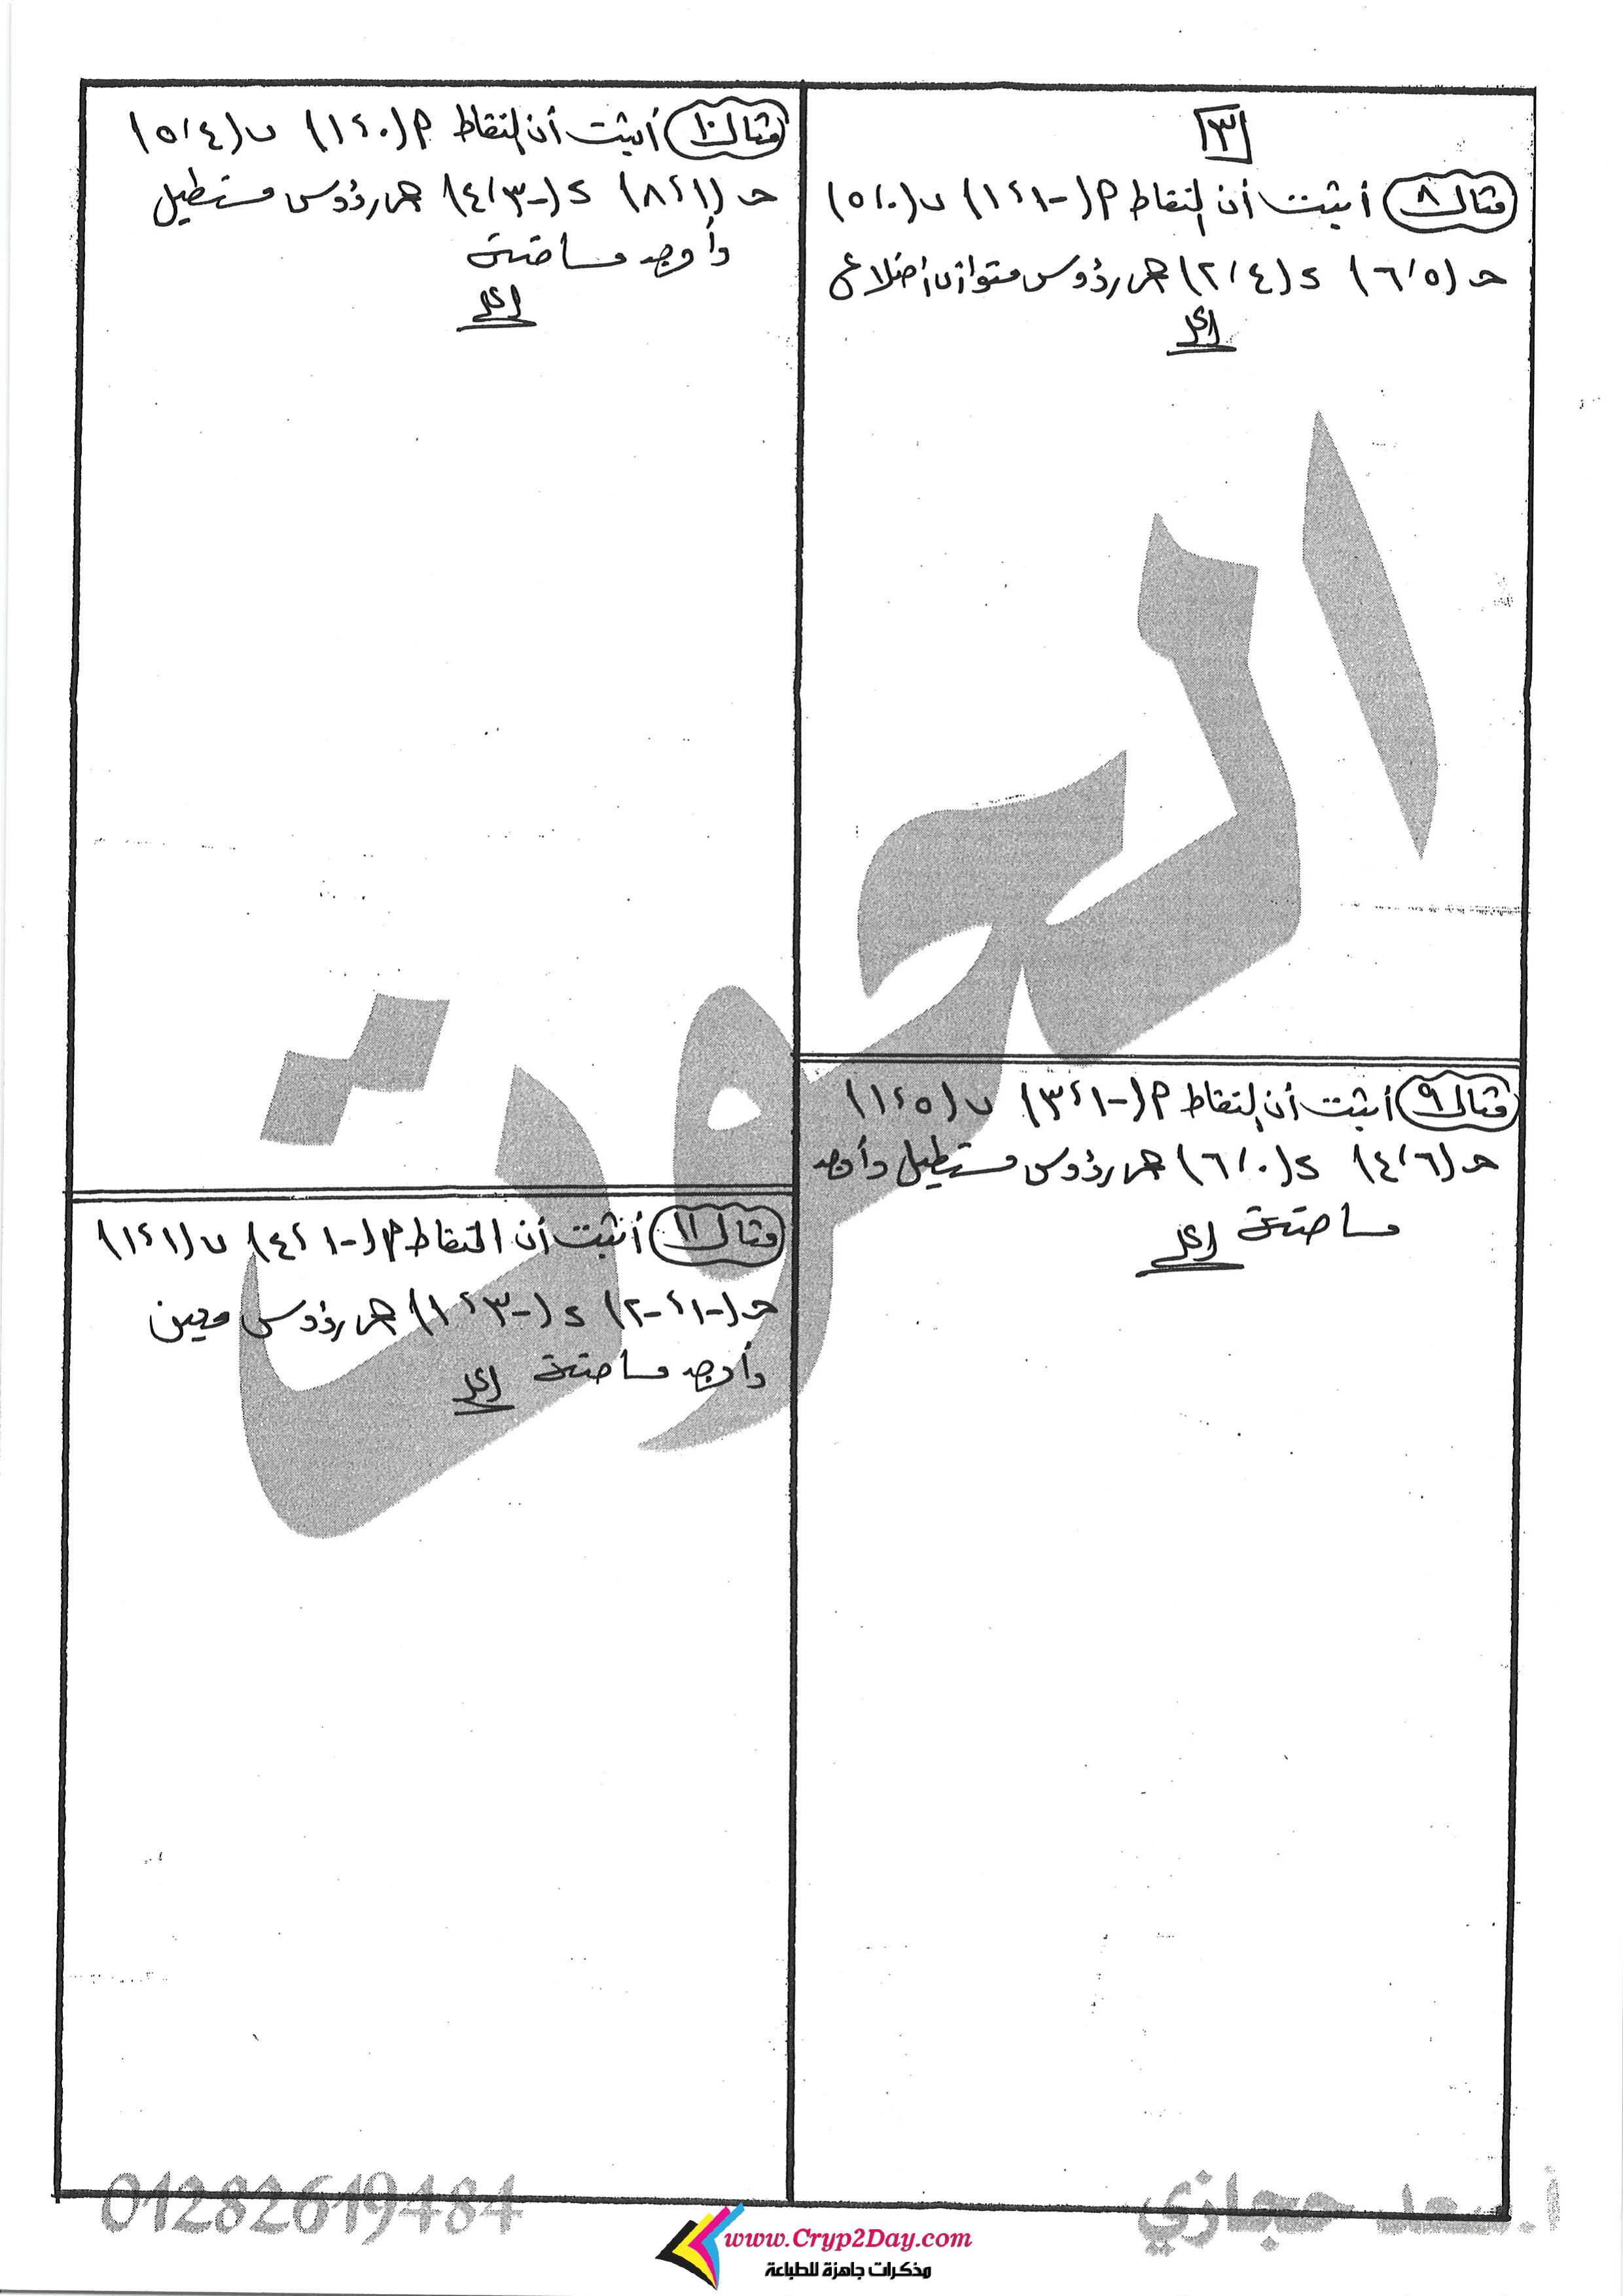 [٣]
مثال ٨ أثبت أن النقاط م(-١،١) ب(٠،٥)
حـ(٥،٦) د(٤،٢) هى رؤوس متوازى أضلاع
الحل
مثال ٩ أثبت أن النقاط م(-١،٣) ب(٥،١)
حـ(٦،٤) د(٠،٦) هى رؤوس مستطيل وأوجد
مساحته الحل
مثال ١٠ أثبت أن النقاط م(٠،١) ب(٤،٥)
حـ(١،٨) د(-٣،٤) هى رؤوس مستطيل
وأوجد مساحته
الحل
مثال ١١ أثبت أن النقاط م(-١،٤) ب(١،١)
حـ(-١،-٢) د(-٣،١) هى رؤوس معين
وأوجد مساحته الحل
الحوت
أ.سعد حجازي
01282619484
www.Cryp2Day.com
مذكرات جاهزة للطباعة